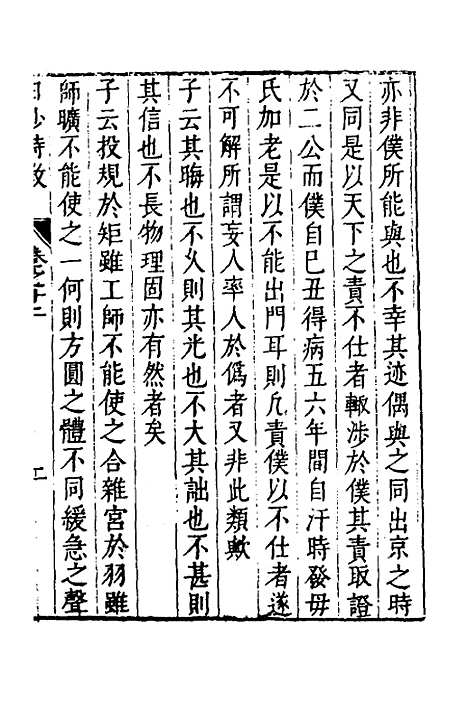 亦非僕所能與也不幸其迹偶與之同出京之時
又同是以天下之責不仕者輙涉於僕其責取證
於二公而僕自巳丑得病五六年間自汗時發毋
氏加老是以不能出門耳則凡責僕以不仕者遂
不可解所謂妄人率人於僞者又非此類歟
子云其晦也不久則其光也不大其詘也不甚則
其信也不長物理固亦有然者矣
子云投規於矩雖工師不能使之合雜宮於羽雖
師曠不能使之一何則方圓之體不同緩急之聲